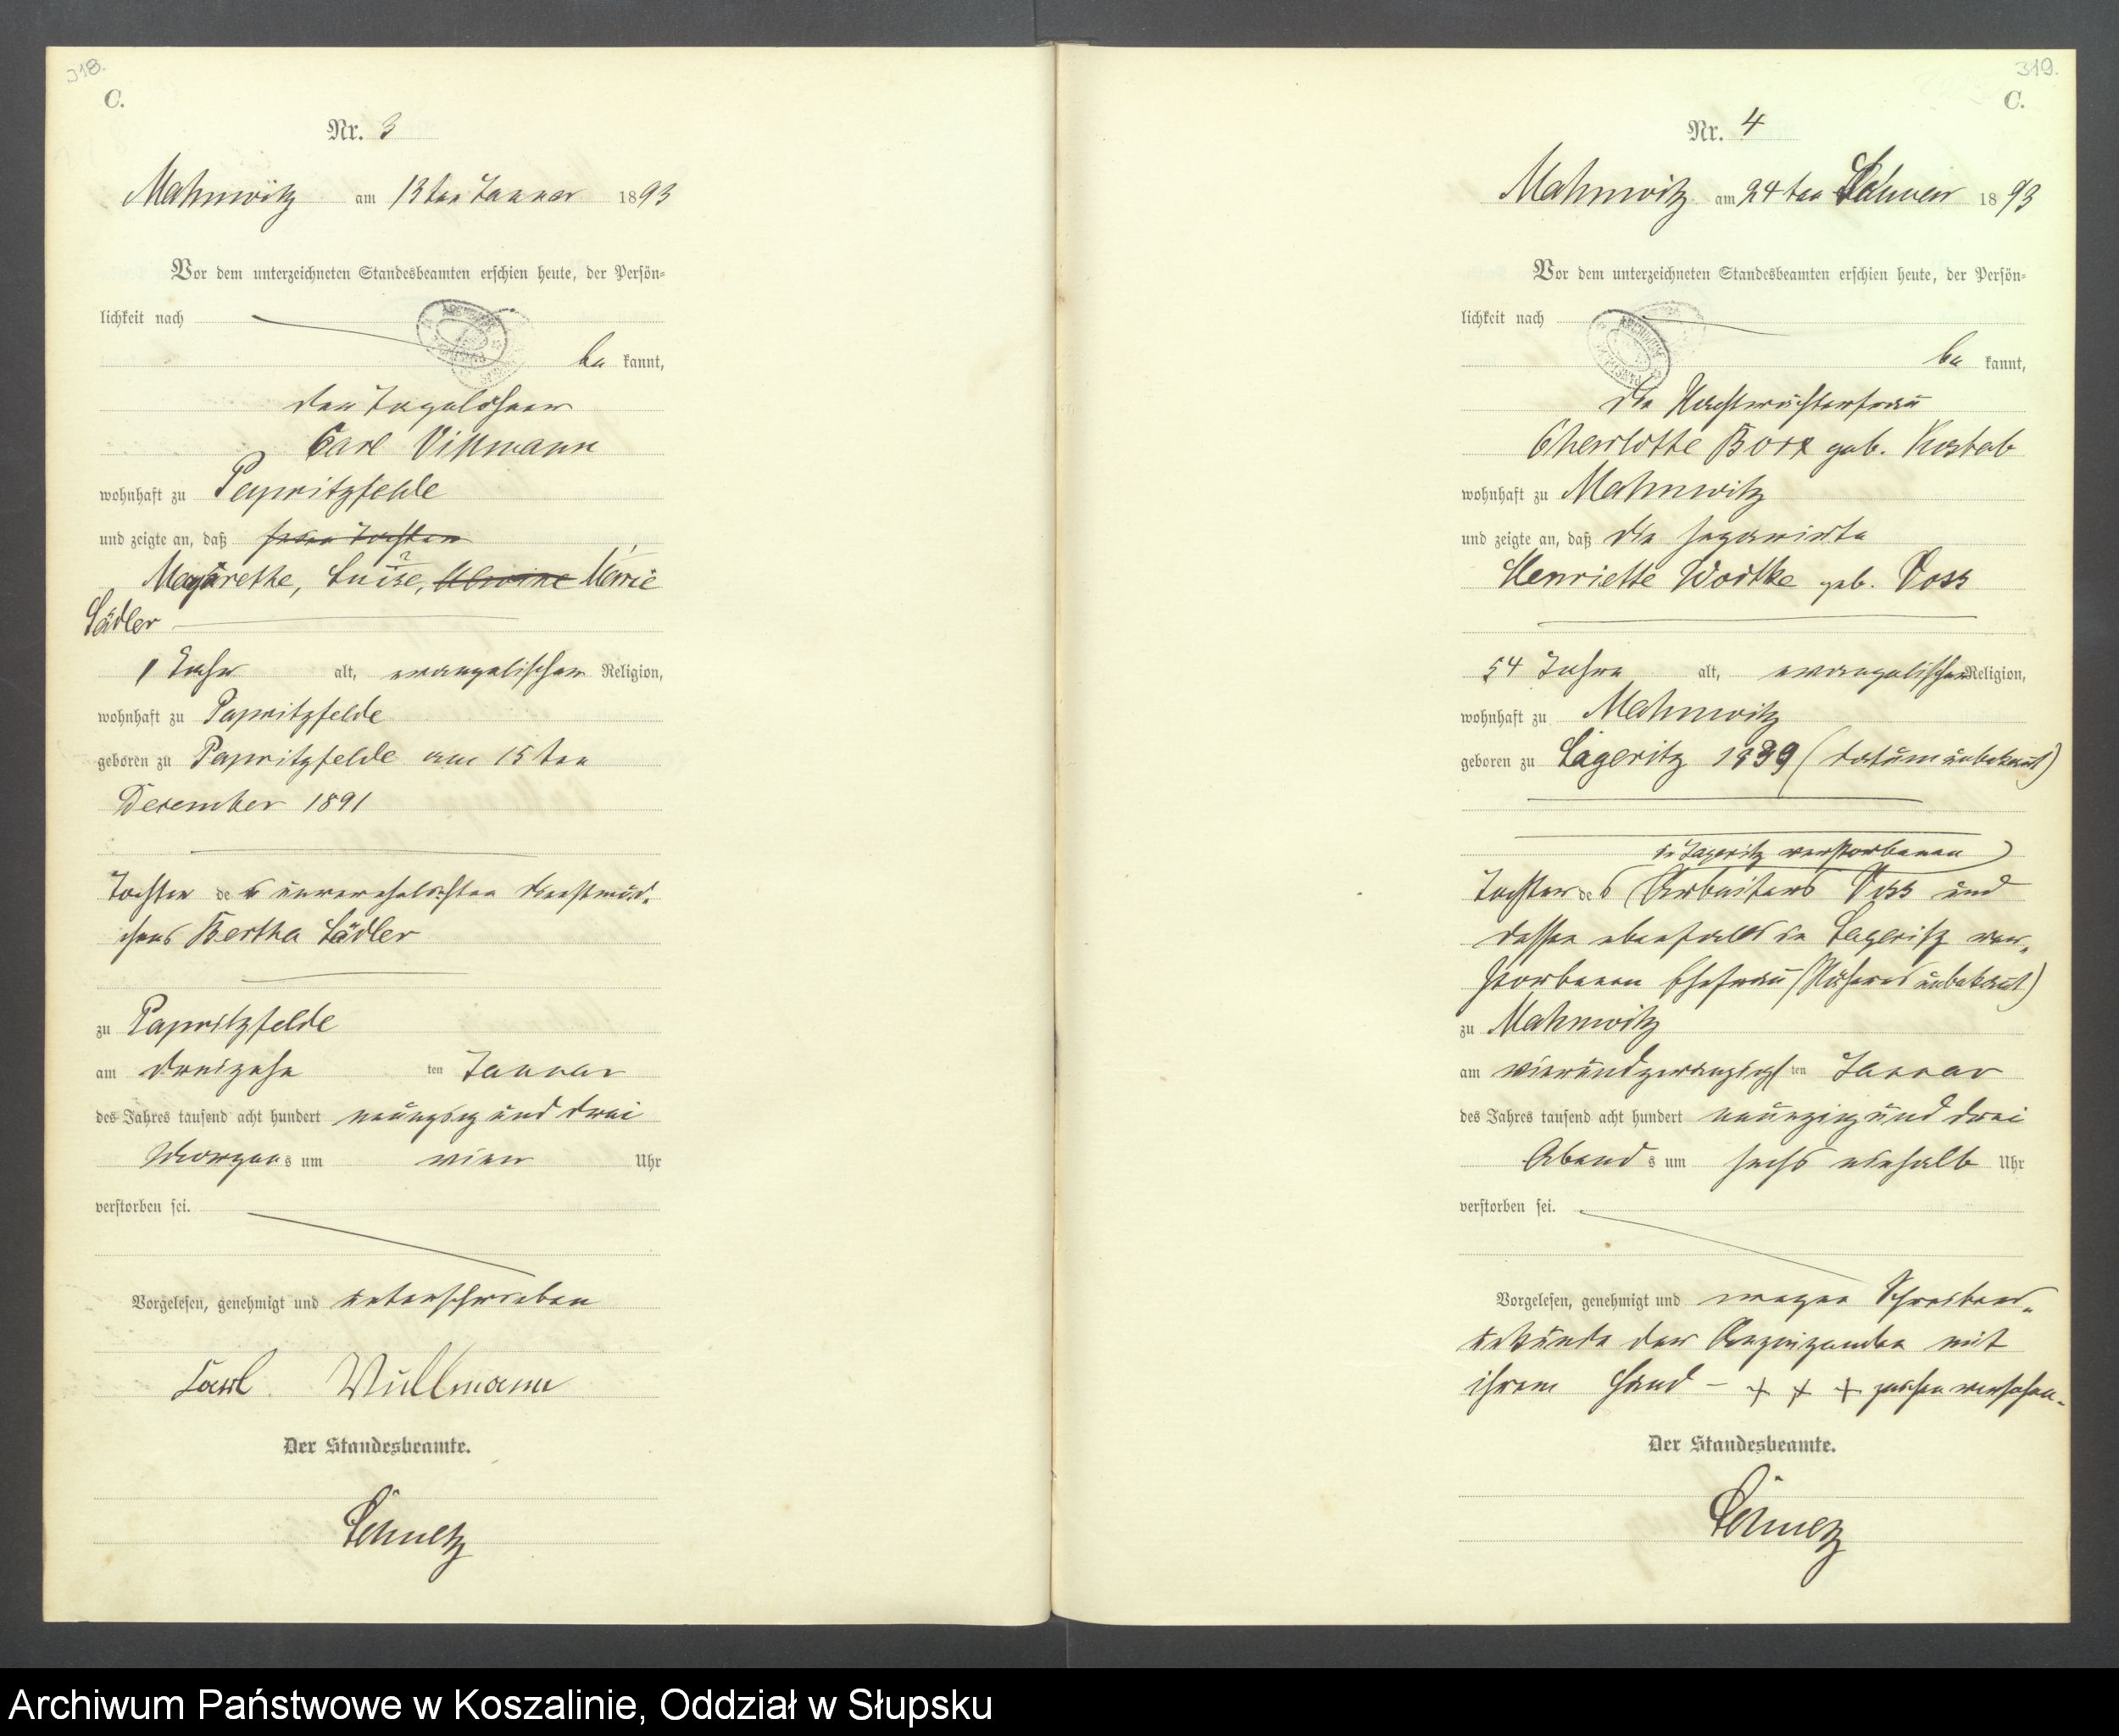 318.
C.
Nr. 3
Mahnwitz am 13ten Januar 1893
Vor dem unterzeichneten Standesbeamten erschien heute, der Persön-
lichkeit nach
be kannt,
der Tagelöhner
Carl
wohnhaft zu Papritzfelde
und zeigte an, daß seine Tochter
Margarethe, Luise, Alwine Marie
Sädler
1 Jahr alt, evangelischer Religion,
wohnhaft zu Papritzfelde
geboren zu Papritzfelde am 15ten
December 1891
Tochter der unverehelichten Dienstmäd-
chens Bertha Sädler
zu Papritzfelde
am dreizehn ten Januar
des Jahres tausend acht hundert neunzig und drei
Morgens um vier Uhr
verstorben sei.
Vorgelesen, genehmigt und unterschrieben
Carl Wullmann
Der Standesbeamte.
319.
C.
Nr. 4
Mahnwitz am 24ten Januar 1893
Vor dem unterzeichneten Standesbeamten erschien heute, der Persön-
lichkeit nach
be kannt,
die Nachtwächterfrau
Charlotte geb.
wohnhaft zu Mahnwitz
und zeigte an, daß die separirte
Henriette Wodtke geb. Voss
54 Jahre alt, evangelischer Religion,
wohnhaft zu Mahnwitz
geboren zu Lageritz 1839 (Datum unbekannt)
in Lageritz verstorbenen
Tochter des Arbeiters Voss und
dessen ebenfalls in Lageritz ver-
storbenen Ehefrau (Näheres unbekannt)
zu Mahnwitz
am vierundzwanzigsten Januar
des Jahres tausend acht hundert neunzig und drei
Abends um sechs einhalb Uhr
verstorben sei.
Vorgelesen, genehmigt und wegen Schreibens-
unkunde der Anzeigenden mit
ihrem Hand - + + + zeichen versehen.
Der Standesbeamte.
Archiwum Państwowe w Koszalinie, Oddział w Słupsku